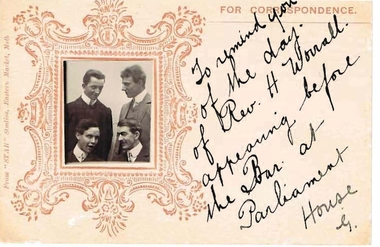 FOR CORRESPONDENCE.
To remind you
of the day
of Rev. H Worrall.
appearing before
the Bar at
Parliament
House
G.
From "STAR" Studios, Eastern Market, Melb